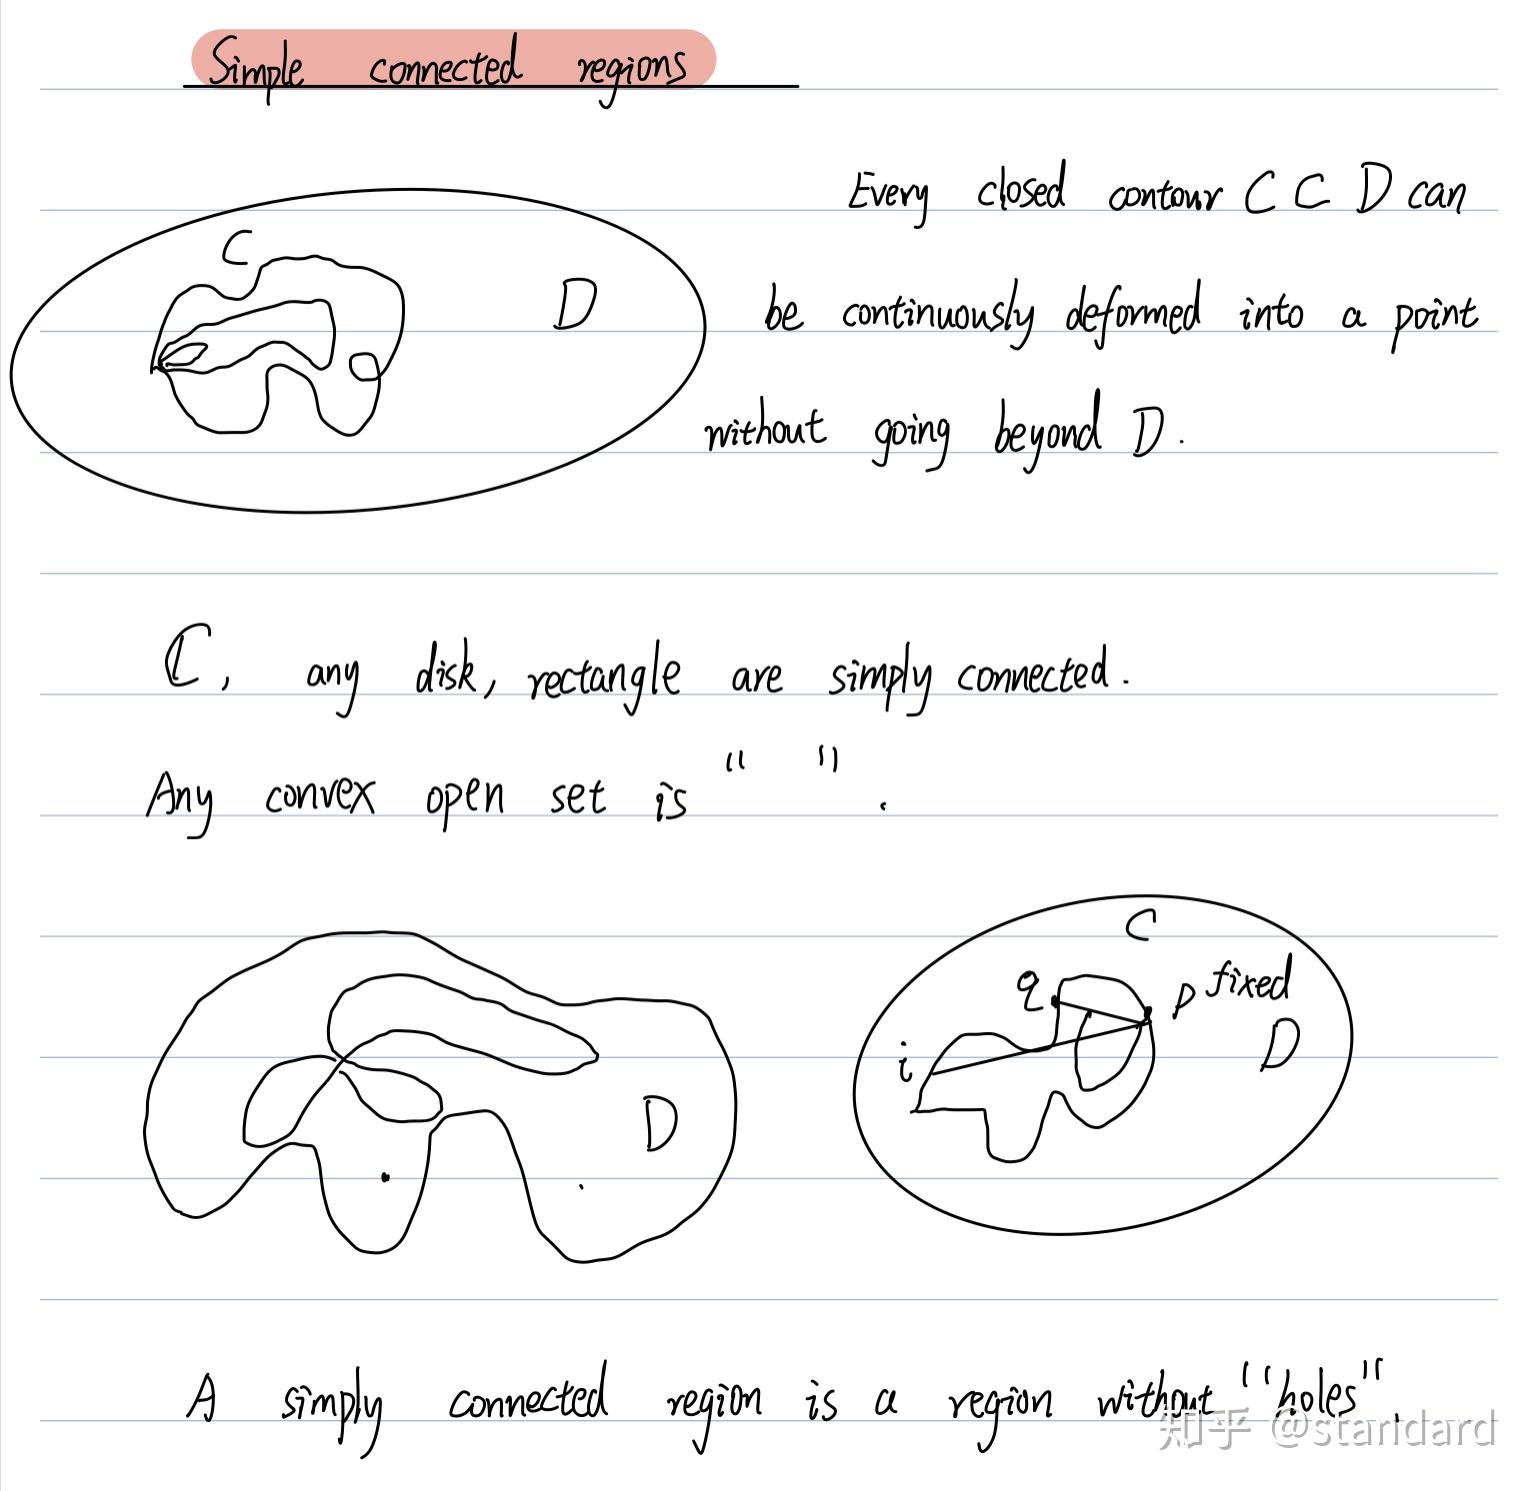 Simple connected regions
C
D
Every closed contour C ⊂ D can
be continuously deformed into a point
without going beyond D.
ℂ, any disk, rectangle are simply connected.
Any convex open set is " ".
D
C
q
p fixed
i
D
A simply connected region is a region without "holes".
知乎 @standard